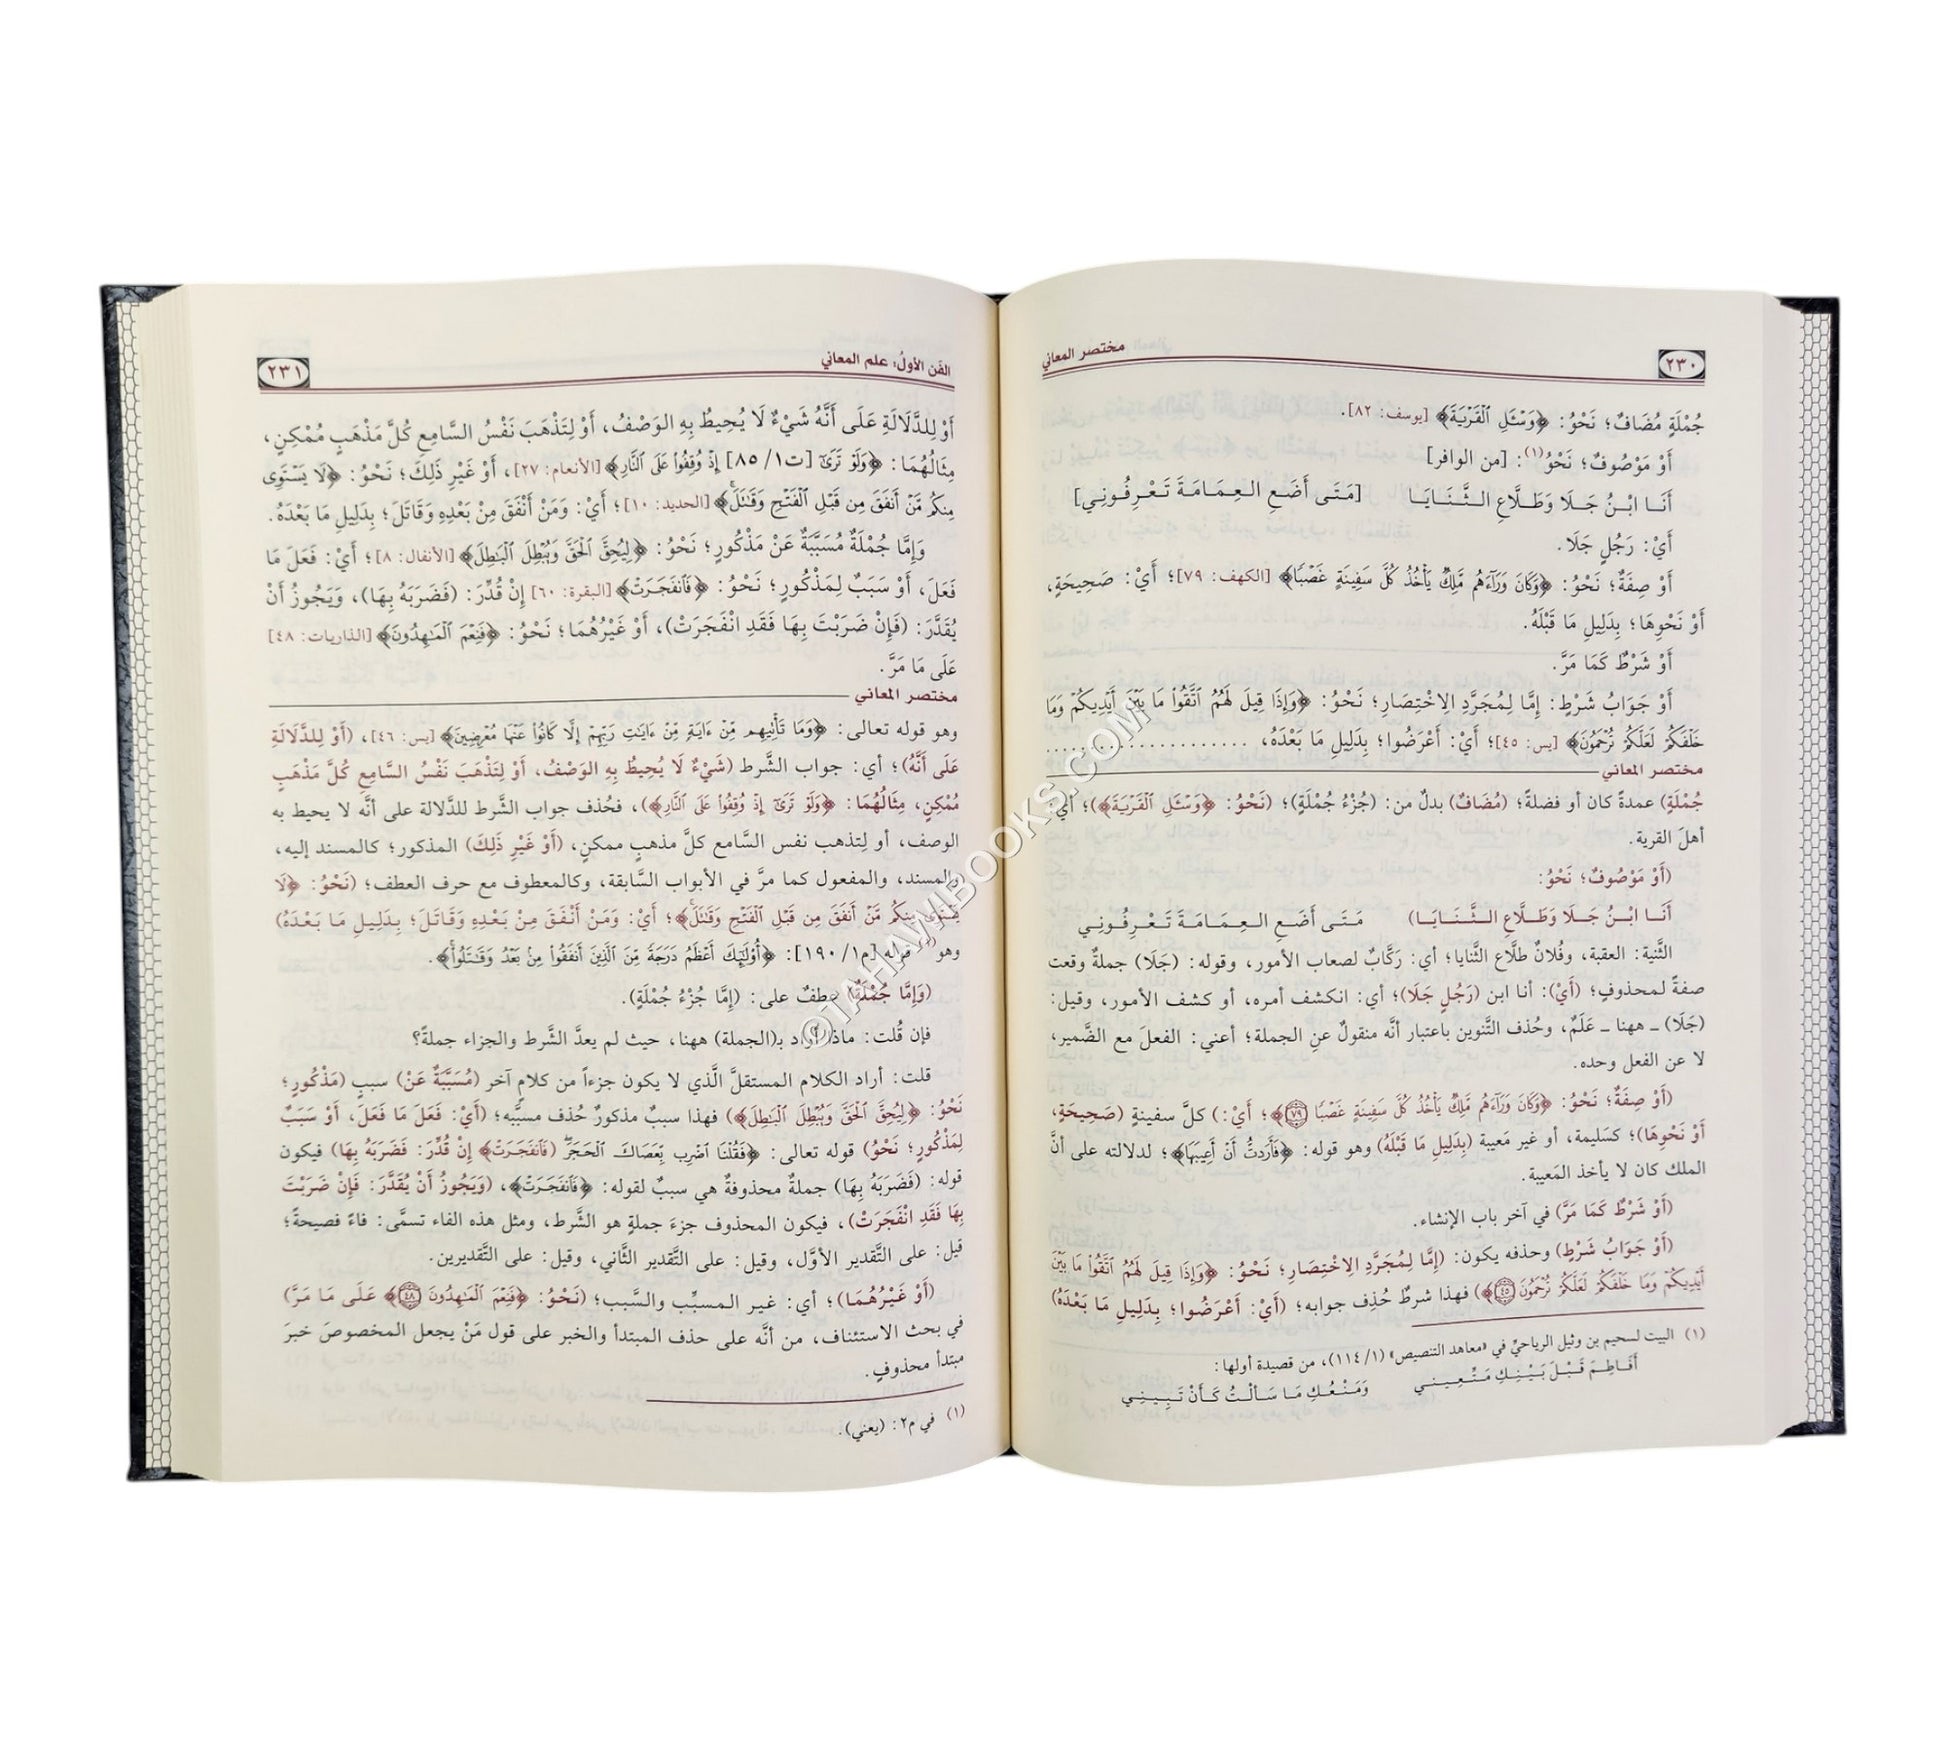 مختصر المعاني
٢٣٠
جُمْلَةٍ مُضَافٌ؛ نَحْوُ: ﴿وَسْـَٔلِ ٱلْقَرْيَةَ﴾ [يوسف: ٨٢].
أَوْ مَوْصُوفٌ؛ نَحْوُ(١): [من الوافر]
أَنَا ابْنُ جَلَا وَطَلَّاعِ الثَّنَايَا [مَتَى أَضَعِ العِمَامَةَ تَعْرِفُونِي]
أَيْ: رَجُلٍ جَلَا.
أَوْ صِفَةٌ؛ نَحْوُ: ﴿وَكَانَ وَرَآءَهُم مَّلِكٌ يَأْخُذُ كُلَّ سَفِينَةٍ غَصْبًا﴾ [الكهف: ٧٩]؛ أَيْ: صَحِيحَةٍ،
أَوْ نَحْوِهَا؛ بِدَلِيلِ مَا قَبْلَهُ.
أَوْ شَرْطٌ كَمَا مَرَّ.
أَوْ جَوَابُ شَرْطٍ: إِمَّا لِمُجَرَّدِ الِاخْتِصَارِ؛ نَحْوُ: ﴿وَإِذَا قِيلَ لَهُمُ ٱتَّقُوا۟ مَا بَيْنَ أَيْدِيكُمْ وَمَا
خَلْفَكُمْ لَعَلَّكُمْ تُرْحَمُونَ﴾ [يس: ٤٥]؛ أَيْ: أَعْرَضُوا؛ بِدَلِيلِ مَا بَعْدَهُ، ....................
مختصر المعاني
جُمْلَةٍ) عمدةً كان أو فضلةً؛ (مُضَافٌ) بدلٌ من: (جُزْءُ جُمْلَةٍ)؛ (نَحْوُ: ﴿وَسْـَٔلِ ٱلْقَرْيَةَ﴾)؛ أي:
أهلَ القرية.
(أَوْ مَوْصُوفٌ؛ نَحْوُ:
أَنَا ابْنُ جَلَا وَطَلَّاعِ الثَّنَايَا) مَتَى أَضَعِ العِمَامَةَ تَعْرِفُونِي
الثَّنية: العقبة، وفُلانٌ طلَّاع الثَّنايا؛ أي: رَكَّابٌ لصعاب الأمور، وقوله: (جَلَا) جملةٌ وقعت
صفةً لمحذوفٍ؛ (أَيْ): أنا ابن (رَجُلٍ جَلَا)؛ أي: انكشف أمره، أو كشف الأمور، وقيل:
(جَلَا) ـ ههنا ـ عَلَمٌ، وحُذف التَّنوين باعتبار أنَّه منقولٌ عنِ الجملة؛ أعني: الفعلَ مع الضَّمير،
لا عن الفعل وحده.
(أَوْ صِفَةٌ؛ نَحْوُ: ﴿وَكَانَ وَرَآءَهُم مَّلِكٌ يَأْخُذُ كُلَّ سَفِينَةٍ غَصْبًا ٧٩﴾؛ أَيْ:) كلَّ سفينةٍ (صَحِيحَةٍ،
أَوْ نَحْوِهَا)؛ كسَليمة، أو غير مَعيبة (بِدَلِيلِ مَا قَبْلَهُ) وهو قوله: ﴿فَأَرَدتُّ أَنْ أَعِيبَهَا﴾؛ لدلالته على أنَّ
الملك كان لا يأخذ المَعيبة.
(أَوْ شَرْطٌ كَمَا مَرَّ) في آخر باب الإنشاء.
(أَوْ جَوَابُ شَرْطٍ) وحذفه يكون: (إِمَّا لِمُجَرَّدِ الِاخْتِصَارِ؛ نَحْوُ: ﴿وَإِذَا قِيلَ لَهُمُ ٱتَّقُوا۟ مَا بَيْنَ
أَيْدِيكُمْ وَمَا خَلْفَكُمْ لَعَلَّكُمْ تُرْحَمُونَ ٤٥﴾) فهذا شرطٌ حُذِف جوابه؛ (أَيْ: أَعْرَضُوا؛ بِدَلِيلِ مَا بَعْدَهُ)
(١) البيت لسحيم بن وثيل الرياحيِّ في «معاهد التنصيص» (١/ ١١٤)، من قصيدة أولها:
أَفَاطِمَ قَبْلَ بَيْنِكِ مَتِّعِينِي وَمَنْعُكِ مَا سَأَلْتُ كَأَنْ تَبِينِي
الفن الأولُ: علم المعاني
٢٣١
أَوْ لِلدَّلَالَةِ عَلَى أَنَّهُ شَيْءٌ لَا يُحِيطُ بِهِ الوَصْفُ، أَوْ لِتَذْهَبَ نَفْسُ السَّامِعِ كُلَّ مَذْهَبٍ مُمْكِنٍ،
مِثَالُهُمَا: ﴿وَلَوْ تَرَىٰٓ [ت١/ ٨٥] إِذْ وُقِفُوا۟ عَلَى ٱلنَّارِ﴾ [الأنعام: ٢٧]، أَوْ غَيْرِ ذَلِكَ؛ نَحْوُ: ﴿لَا يَسْتَوِى
مِنكُم مَّنْ أَنفَقَ مِن قَبْلِ ٱلْفَتْحِ وَقَـٰتَلَ﴾ [الحديد: ١٠]؛ أَيْ: وَمَنْ أَنْفَقَ مِنْ بَعْدِهِ وَقَاتَلَ؛ بِدَلِيلِ مَا بَعْدَهُ.
وَإِمَّا جُمْلَةٌ مُسَبَّبَةٌ عَنْ مَذْكُورٍ؛ نَحْوُ: ﴿لِيُحِقَّ ٱلْحَقَّ وَيُبْطِلَ ٱلْبَـٰطِلَ﴾ [الأنفال: ٨]؛ أَيْ: فَعَلَ مَا
فَعَلَ، أَوْ سَبَبٌ لِمَذْكُورٍ؛ نَحْوُ: ﴿فَٱنفَجَرَتْ﴾ [البقرة: ٦٠] إِنْ قُدِّرَ: (فَضَرَبَهُ بِهَا)، وَيَجُوزُ أَنْ
يُقَدَّرَ: (فَإِنْ ضَرَبْتَ بِهَا فَقَدِ انْفَجَرَتْ)، أَوْ غَيْرُهُمَا؛ نَحْوُ: ﴿فَنِعْمَ ٱلْمَـٰهِدُونَ﴾ [الذاريات: ٤٨]
عَلَى مَا مَرَّ.
مختصر المعاني
وهو قوله تعالى: ﴿وَمَا تَأْتِيهِم مِّنْ ءَايَةٍ مِّنْ ءَايَـٰتِ رَبِّهِمْ إِلَّا كَانُوا۟ عَنْهَا مُعْرِضِينَ﴾ [يس: ٤٦]، (أَوْ لِلدَّلَالَةِ
عَلَى أَنَّهُ)؛ أي: جواب الشَّرط (شَيْءٌ لَا يُحِيطُ بِهِ الوَصْفُ، أَوْ لِتَذْهَبَ نَفْسُ السَّامِعِ كُلَّ مَذْهَبٍ
مُمْكِنٍ، مِثَالُهُمَا: ﴿وَلَوْ تَرَىٰٓ إِذْ وُقِفُوا۟ عَلَى ٱلنَّارِ﴾)، فحُذف جواب الشَّرط للدَّلالة على أنَّه لا يحيط به
الوصف، أو لِتذهب نفس السَّامع كلَّ مذهبٍ ممكنٍ، (أَوْ غَيْرِ ذَلِكَ) المذكور؛ كالمسند إليه،
والمسند، والمفعول كما مرَّ في الأبواب السَّابقة، وكالمعطوف مع حرف العطف؛ (نَحْوُ: ﴿لَا
يَسْتَوِى مِنكُم مَّنْ أَنفَقَ مِن قَبْلِ ٱلْفَتْحِ وَقَـٰتَلَ﴾؛ أَيْ: وَمَنْ أَنْفَقَ مِنْ بَعْدِهِ وَقَاتَلَ؛ بِدَلِيلِ مَا بَعْدَهُ)
وهو قوله [م١/ ١٩٠]: ﴿أُو۟لَـٰٓئِكَ أَعْظَمُ دَرَجَةً مِّنَ ٱلَّذِينَ أَنفَقُوا۟ مِنۢ بَعْدُ وَقَـٰتَلُوا۟﴾.
(وَإِمَّا جُمْلَةٌ) عطفٌ على: (إِمَّا جُزْءُ جُمْلَةٍ).
فإن قُلت: ماذا أراد بـ(الجملة) ههنا، حيث لم يعدَّ الشَّرط والجزاء جملةً؟
قلت: أراد الكلام المستقلَّ الَّذي لا يكون جزءاً من كلامٍ آخر (مُسَبَّبَةٌ عَنْ) سببٍ (مَذْكُورٍ؛
نَحْوُ: ﴿لِيُحِقَّ ٱلْحَقَّ وَيُبْطِلَ ٱلْبَـٰطِلَ﴾) فهذا سببٌ مذكورٌ حُذف مسبَّبه؛ (أَيْ: فَعَلَ مَا فَعَلَ، أَوْ سَبَبٌ
لِمَذْكُورٍ؛ نَحْوُ) قوله تعالى: ﴿فَقُلْنَا ٱضْرِب بِّعَصَاكَ ٱلْحَجَرَ (فَٱنفَجَرَتْ﴾ إِنْ قُدِّرَ: فَضَرَبَهُ بِهَا) فيكون
قوله: (فَضَرَبَهُ بِهَا) جملةٌ محذوفةٌ هي سببٌ لقوله: ﴿فَٱنفَجَرَتْ﴾، (وَيَجُوزُ أَنْ يُقَدَّرَ: فَإِنْ ضَرَبْتَ
بِهَا فَقَدِ انْفَجَرَتْ)، فيكون المحذوف جزءَ جملةٍ هو الشَّرط، ومثل هذه الفاء تسمَّى: فاءً فصيحةً؛
قيل: على التَّقدير الأوَّل، وقيل: على التَّقدير الثَّاني، وقيل: على التَّقديرين.
(أَوْ غَيْرُهُمَا)؛ أي: غير المسبِّب والسَّبب؛ (نَحْوُ: ﴿فَنِعْمَ ٱلْمَـٰهِدُونَ ٤٨﴾ عَلَى مَا مَرَّ)
في بحث الاستئناف، من أنَّه على حذف المبتدأ والخبر على قول مَنْ يجعل المخصوصَ خبرَ
مبتدأ محذوفٍ.
(١) في م٢: (يعني).
©TAHAWIBOOKS.COM